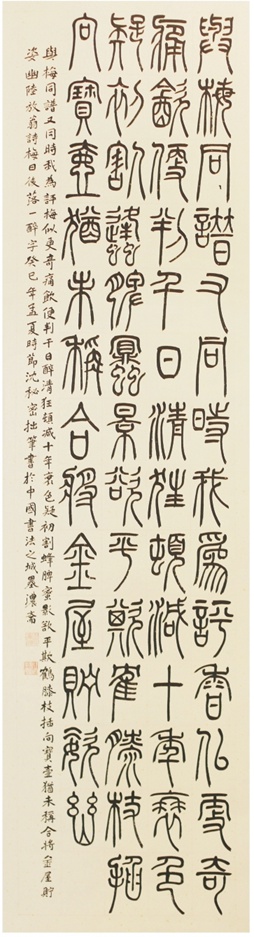 與梅同譜又同時我爲評香似更奇
痛飲便判千日清狂頓減十年衰色
疑初割蜂脾蜜影欲平欺鶴膝枝插
向寶壺猶未稱合將金屋貯姿幽
與梅同譜又同時我為評梅似更奇痛飲便判千日醉清狂頓減十年衰色疑初割蜂脾蜜影欲平欺鶴膝枝插向寶壺猶未稱合將金屋貯
姿幽陸放翁詩梅日後落一醉字癸巳年孟夏時節沈秘密拙筆書於中國書法之城墨濃齋